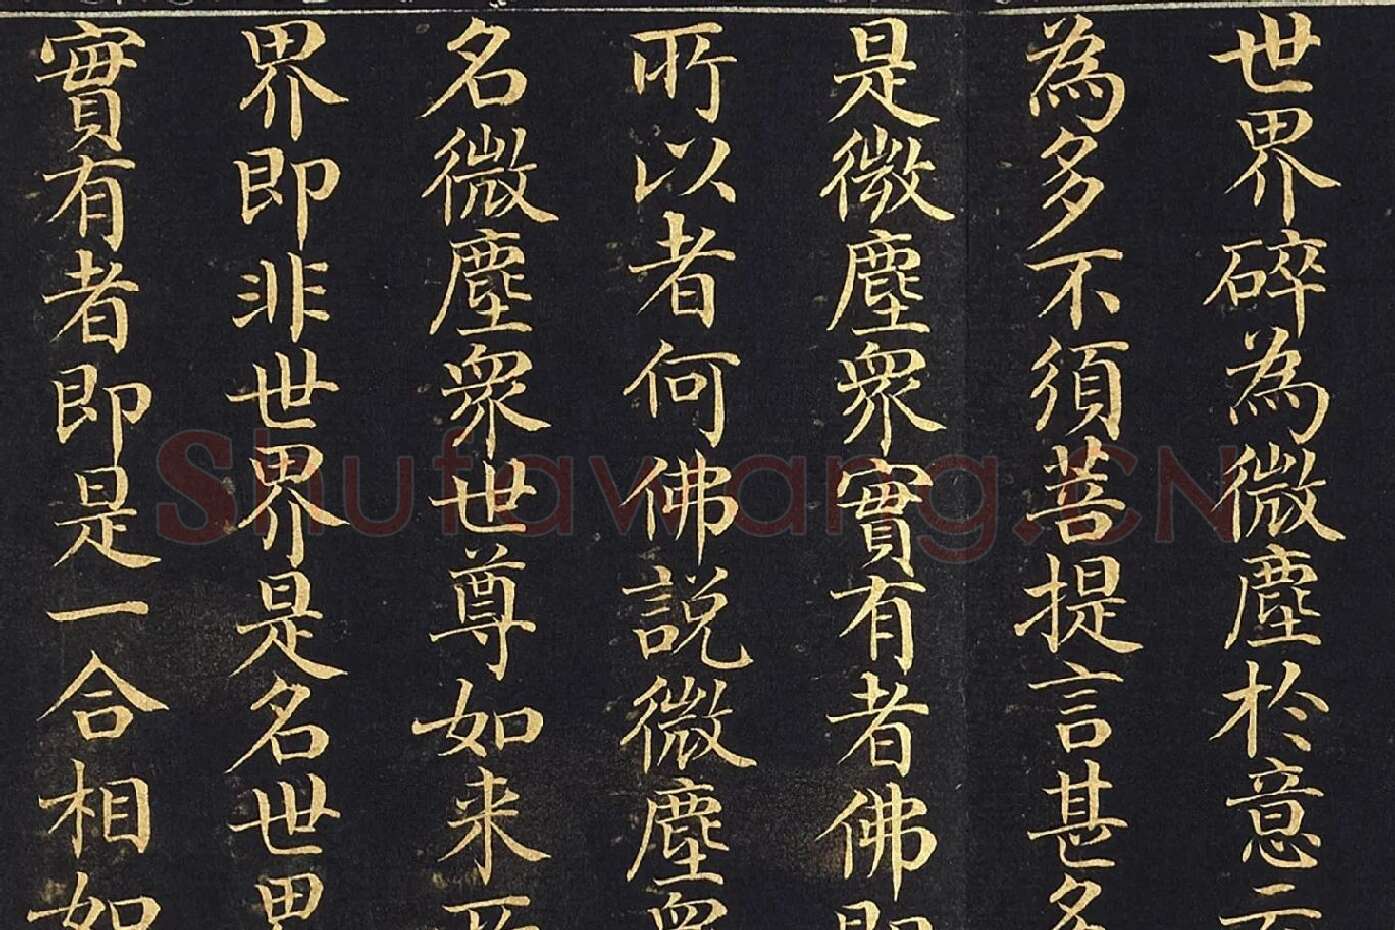 世界碎為微塵於意云
為多不須菩提言甚多
是微塵衆實有者佛即
所以者何佛説微塵衆
名微塵衆世尊如来所
界即非世界是名世界
實有者即是一合相如
Shufawang.CN